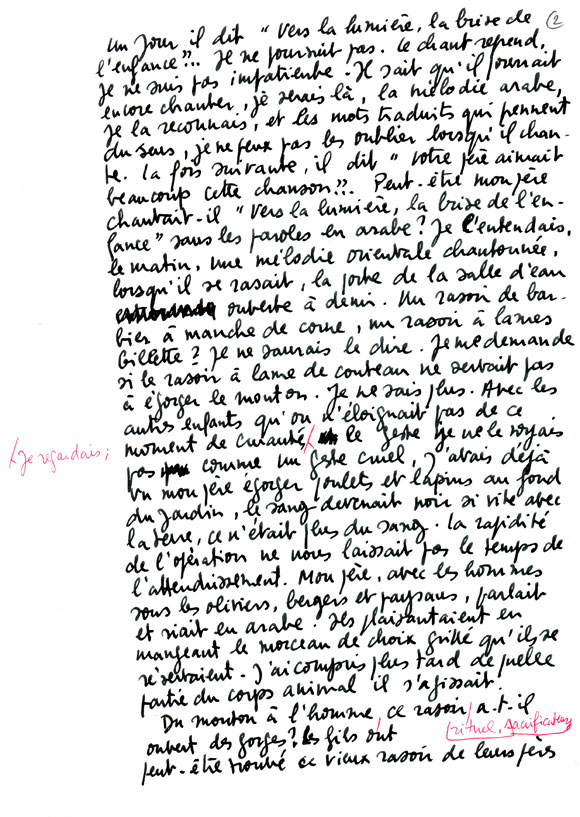 2
Un jour, il dit "Vers la lumière, la brise de
l'enfance"... Je ne pourrais pas. Le chant reprend,
je ne suis pas impatiente. Il sait qu'il pourrait
encore chanter, je serais là, la mélodie arabe,
je la reconnais, et les mots traduits qui prennent
du sens, je ne peux pas les oublier lorsqu'il chan-
te. La fois suivante, il dit "Votre père aimait
beaucoup cette chanson"... Peut-être mon père
chantait-il "Vers la lumière, la brise de l'en-
fance" sans les paroles en arabe? Je l'entendais,
le matin, une mélodie orientale chantonnée,
lorsqu'il se rasait, la porte de la salle d'eau
ouverte à demi. Un rasoir de bar-
bier à manche de corne, un rasoir à lames
Gillette? Je ne saurais le dire. Je me demande
si le rasoir à lame de couteau ne servait pas
à égorger le mouton. Je ne sais plus. Avec les
autres enfants qu'on n'éloignait pas de ce
moment de cruauté, le geste je ne le voyais
(je regardais;
pas comme un geste cruel, j'avais déjà
vu mon père égorger poulets et lapins au fond
du jardin, le sang devenait noir si vite avec
la terre, ce n'était plus du sang. La rapidité
de l'opération ne nous laissait pas le temps de
l'attendrissement. Mon père, avec les hommes
sous les oliviers, bergers et paysans, parlait
et riait en arabe. Ils plaisantaient en
mangeant le morceau de choix grillé qu'ils se
réservaient. J'ai compris plus tard de quelle
partie du corps animal il s'agissait.
Du mouton à l'homme, ce rasoir, a-t-il
rituel, sacrificateur
ouvert des gorges? Les fils ont
peut-être trouvé ce vieux rasoir de leurs pères